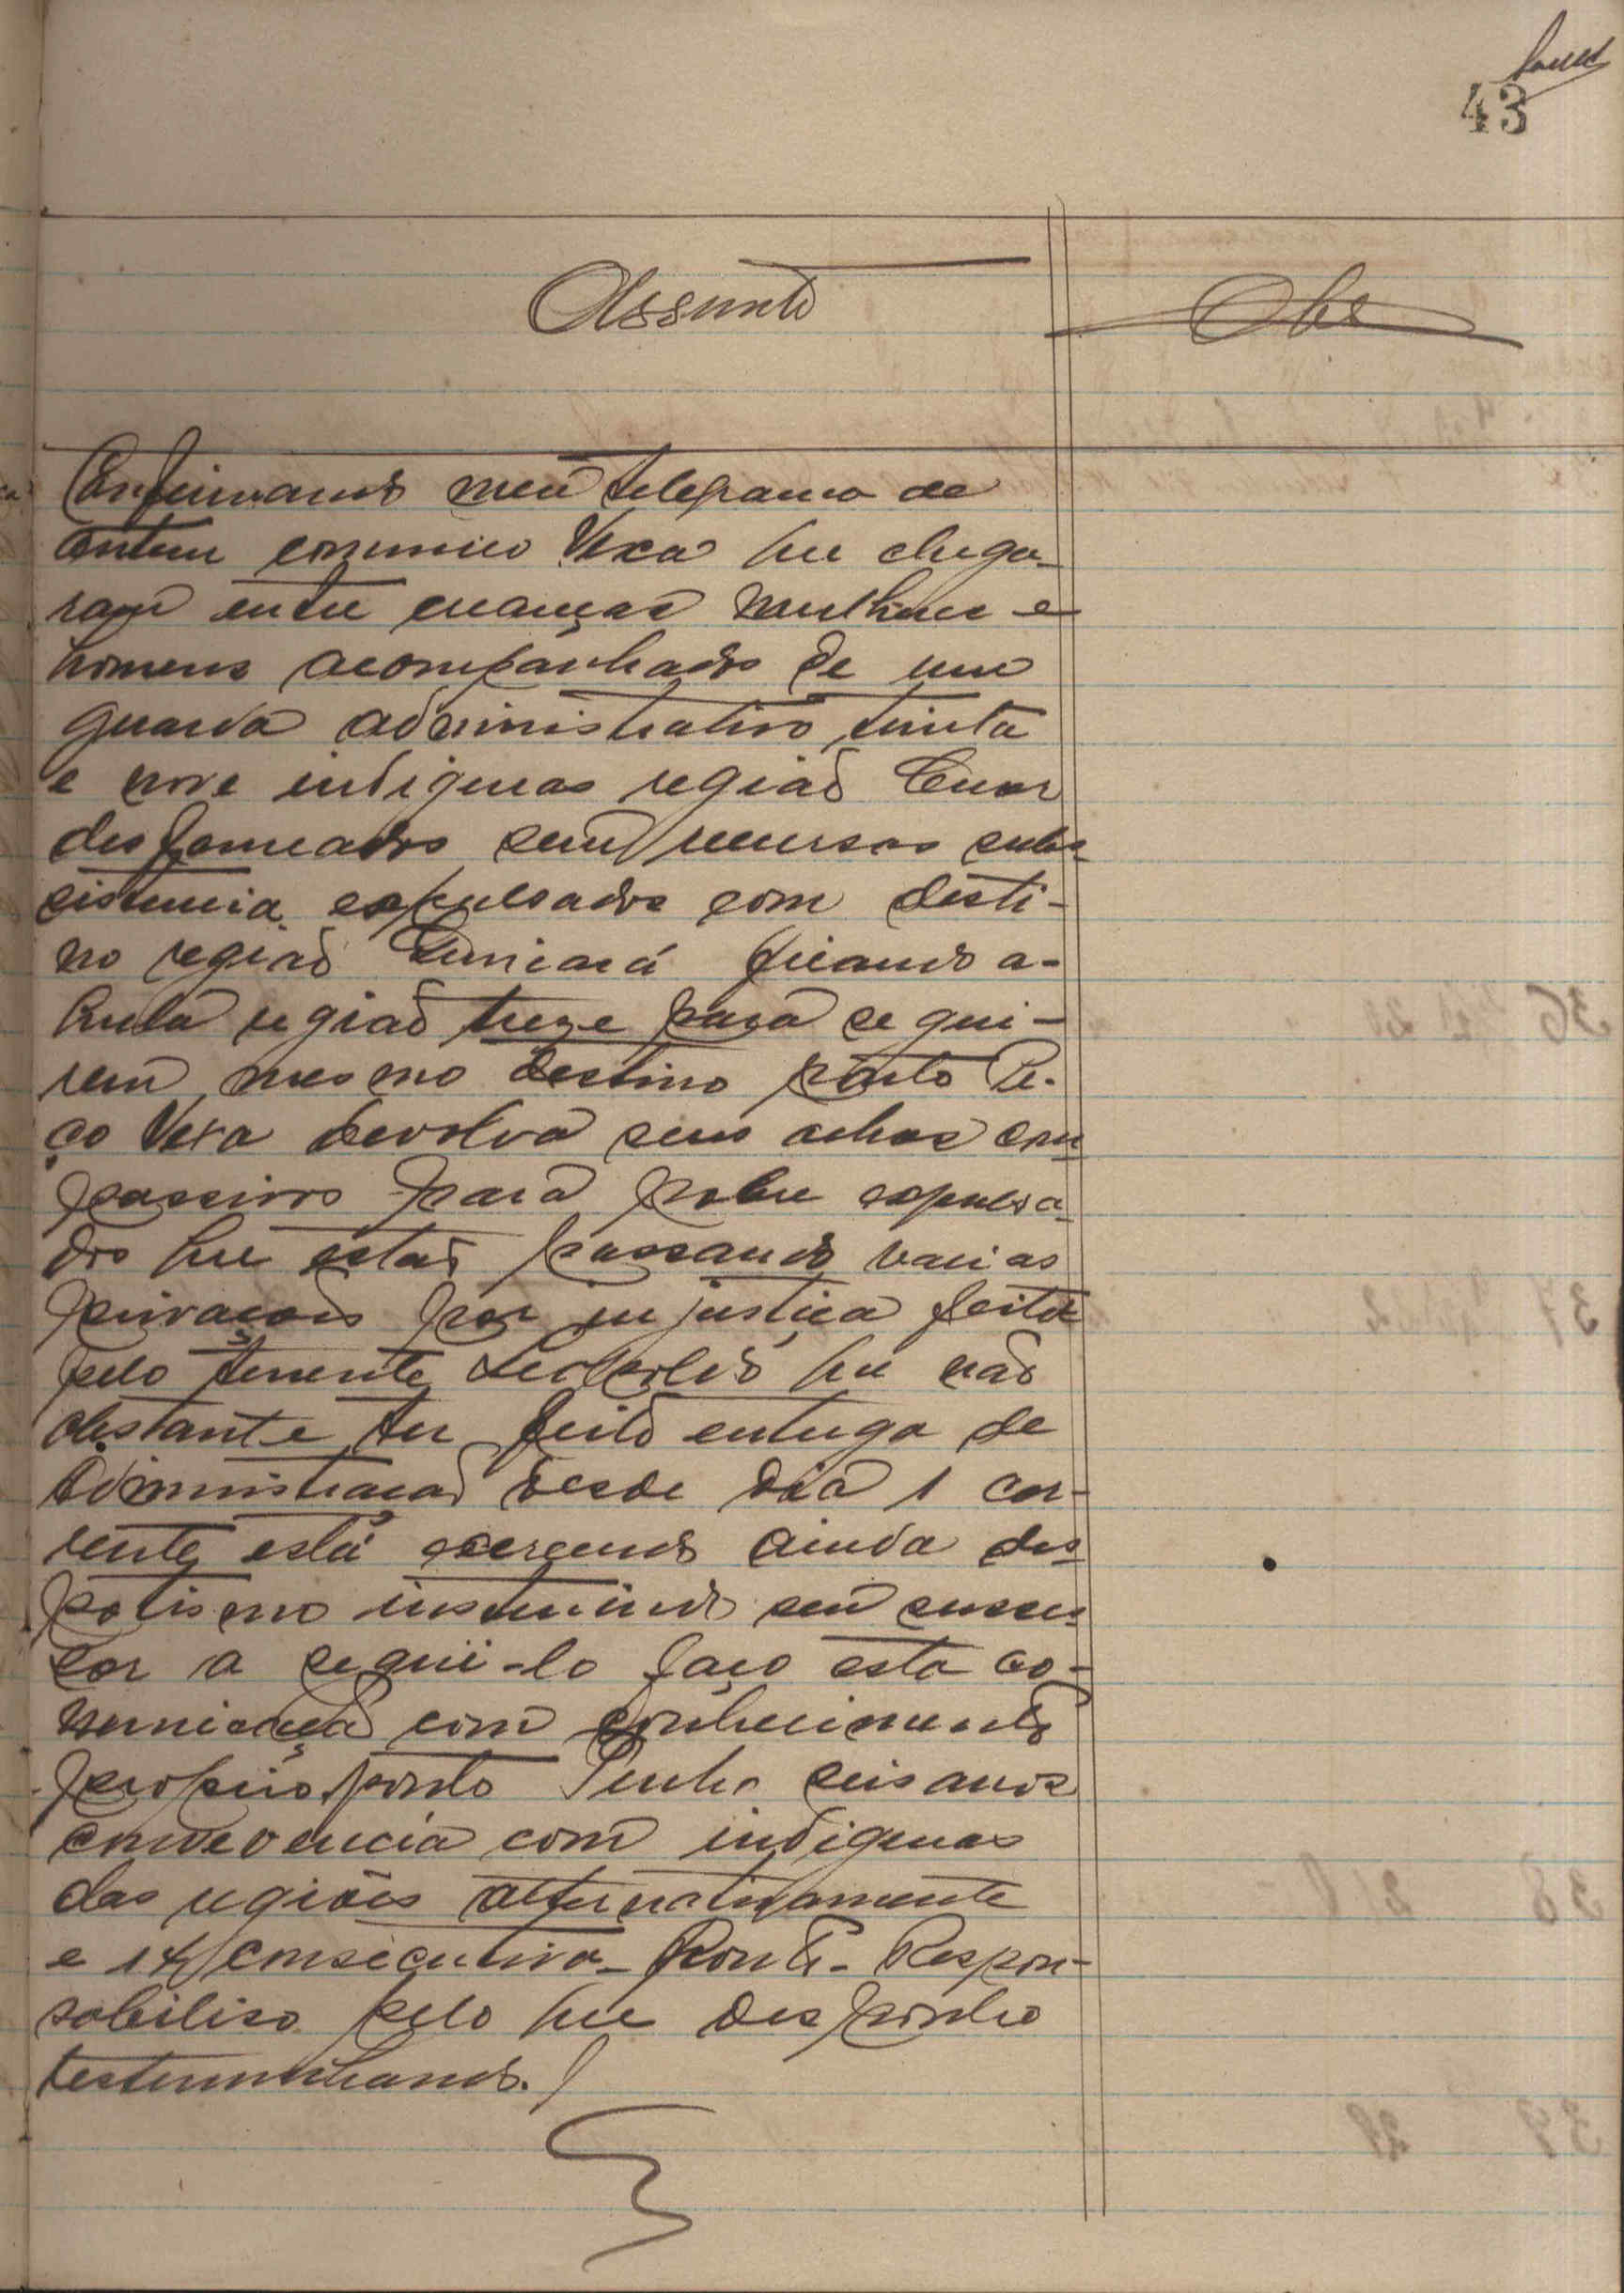 43
Assunto
Obs
Confirmando meu telegrama de
ontem comunico Vexa que chega-
ram entre crianças mulheres e
homens acompanhados de um
guarda administrativo, trinta
e nove indigenas região
desfomeados sem recursos subs-
sistencia expulsados com desti-
no região ficando a-
quela região treze para segui-
rem mesmo destino ponto Pe-
ço Vexa devolva seus com-
passivos para pobre expulsa-
dos que estão passando varias
privações por injustiça feita
pelo tenente Leopoldo que não
obstante ter feito entrega de
administração desde dia 1 cor-
rente está exercendo ainda des-
potismo instruindo seu suces-
sor a seguil-lo faço esta co-
municação com conhecimento
proprio ponto Tenho seis anos
convevencia com indigenas
das regiões alternativamente
e 14 consecutiva - Pont. - Respon-
sabiliso pelo que disponho
testemunhando.